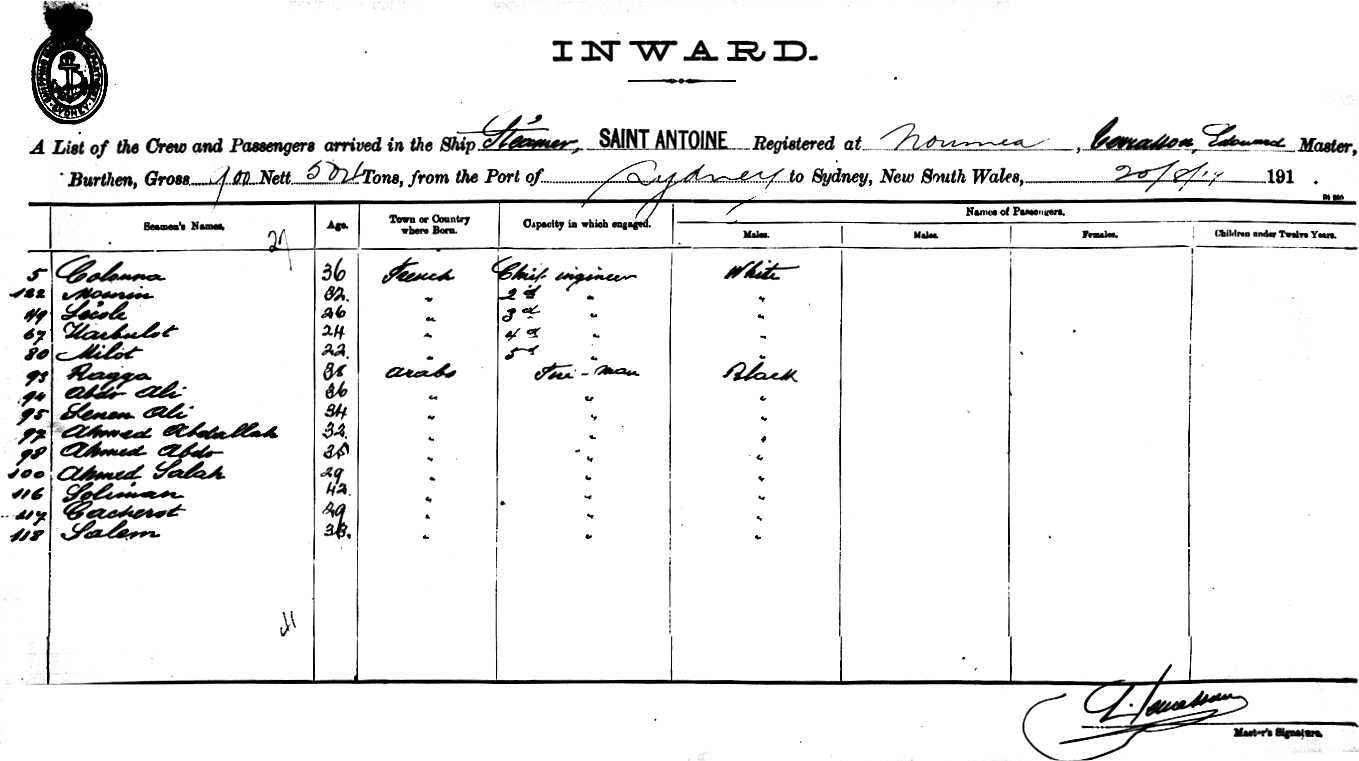 SHIPPING SYDNEY
INWARD.
A List of the Crew and Passengers arrived in the Ship Steamer, SAINT ANTOINE Registered at Noumea, Edouard Master,
Burthen, Gross 900 Nett Tons, from the Port of Sydney to Sydney, New South Wales, 20/8/17 191 .
Names of Passengers.
Seamen's Names. Age. Town or Country where Born. Capacity in which engaged. Males. Males. Females. Children under Twelve Years.
5 Colonna 36 French Chief engineer White
122 Mourin 32. " 2d " "
49 Lécole 26 " 3d " "
67 Harbulot 24 " 4d " "
80 Milot 22. " 5d " "
93 Ragga 38 Arabs Fire-man Black
94 Abdo Ali 36 " " "
95 Ali 34 " " "
97 Ahmed Abdallah 32. " " "
98 Ahmed Abdo 35 " " "
100 Ahmed Salah 29 " " "
116 Soliman 42. " " "
117 Cacherot 29 " " "
118 Salem " " "
Master's Signature.